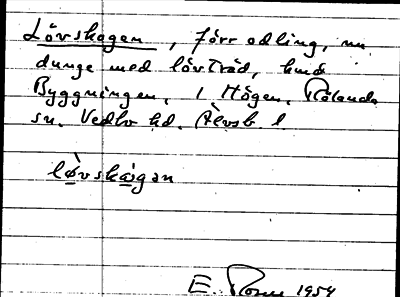 Lövskagen, förr odling, nu
dunge med lövträd, hmd
Byggningen, 1 Högen, Rölanda
sn. Vedbo hd. Älvsb l
lòvskàgən
E. 1954